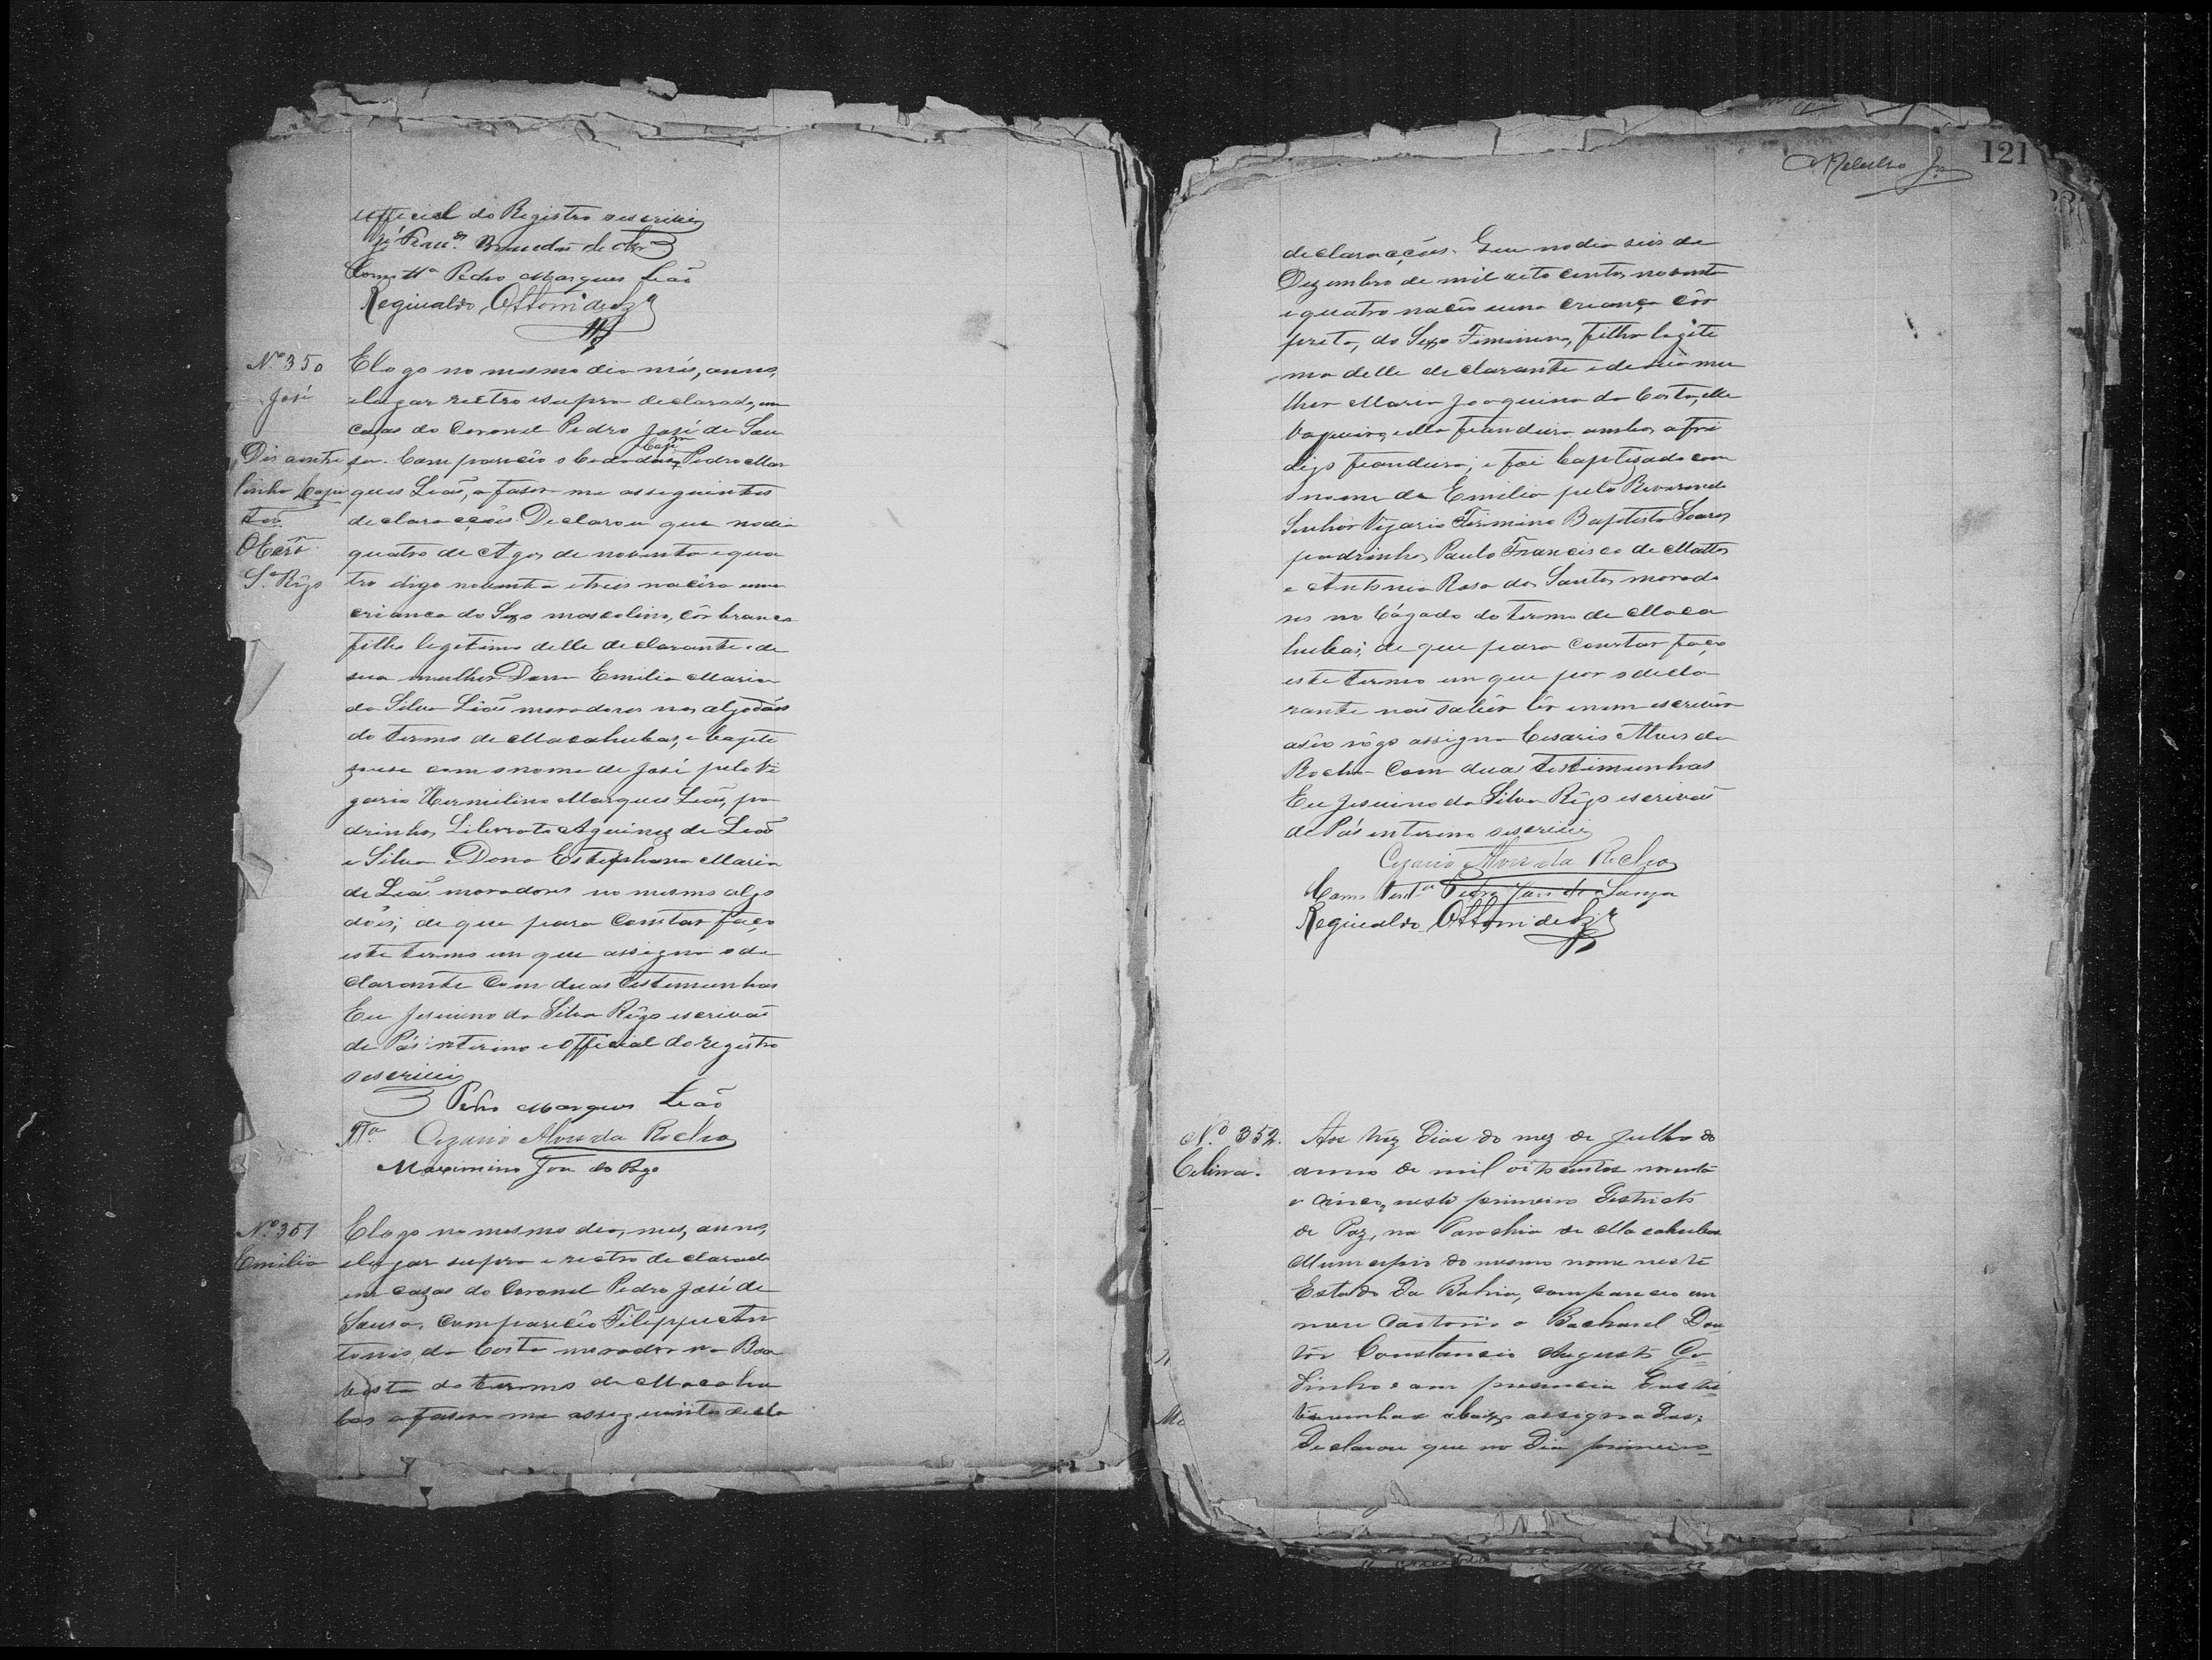 official do Registro o escrivi
Com tta Pedro Marques Leão
Reginaldo Ottoni de Sza
Nº 350
José
Dis a entre
linha Capi
tão
O Escrm
Sa Rêgo
E logo no mesmo dia mês, anno,
e lugar rectro e supra declarado, em
cazas do Coronel Pedro José de Sou
sa. Compareciô o Cidadão Capm Pedro Mar
ques Leão, a faser-me as seguintes
declaracções. Declarou que no dia
quatro de Ago, de noventa e qua
tro digo noventa e treis nacêra uma
crianca do Sexo mascolino, côr branca
filho legitimo delle declarante e de
sua mulher Dona Emilia Maria
da Silva Leão moradores nos algodões
do termo de Macahubas, e bapti
zouse com o nome de José pelo Vi
gario Hermilino Marques Leão, pa
drinhos Liberato Aguinez de Leão
e Silva e Dona Estephana Maria
de Leão moradores no mesmo algo
dões; de que para Constar faço
este termo em que assigna o de
clarante Com duas testimunhas
Eu Jesuino da Silva Rêgo escrivão
de Pás interino e official do registro
o escrivi
Pedro Marques Leão
Tta Cezario Alves da Rocha
Maximino José do Rego
Nº 351
Emilia
E logo no mesmo dia, mes, anno,
e lugar supra e rectro declarado
em cazas do Coronel Pedro José de
Sousa, Compareciô Filippe An
tonio da Costa morador na Boa
Vista do termo de Macahu
bas a faser-me as seguintes decla
121
declaracções. Que no dia seis de
Dezembro de mil oito centos noventa
e quatro naciô uma criança côr
preta, do Sexo Fiminino, filha legiti
ma delle declarante e de sua mu
lher Maria Joaquina da Costa, elle
Vaqueiro, e ella fiandeira ambos a fri
digo fiandeira; e foi baptisada com
o nome de Emilia pelo Reverendo
Senhor Vigario Firmino Baptista Soares
padrinhos Paulo Francisco de Mattos
e Antonia Rosa dos Santos morado
res no Cágado do termo de Maca
hubas; de que para Constar faço
este termo em que por o decla
rante não sabêr lêr e nem escrever
a sêo rôgo assigna Cesario Alves da
Rocha Com duas testimunhas
Eu Jesuino da Silva Rêgo escrivão
de Pás interino o escrivi
Cezario Alves da Rocha
Como Testa Pedro José de Souza
Reginaldo Ottoni de Sza
Nº 352.
Celina.
Aos trez dias do mez de Julho do
anno de mil oito centos noventa
e cinco, neste primeiro Districto
de Paz, na Parochia de Macahubas
Municipio do mesmo nome neste
Estado da Bahia, compareceu em
meu Cartorio o Bacharel Dou
tor Constancio Augusto Go
dinho e em presencia das tes
timunhas abaixo assignadas;
Declarou que no dia primeiro